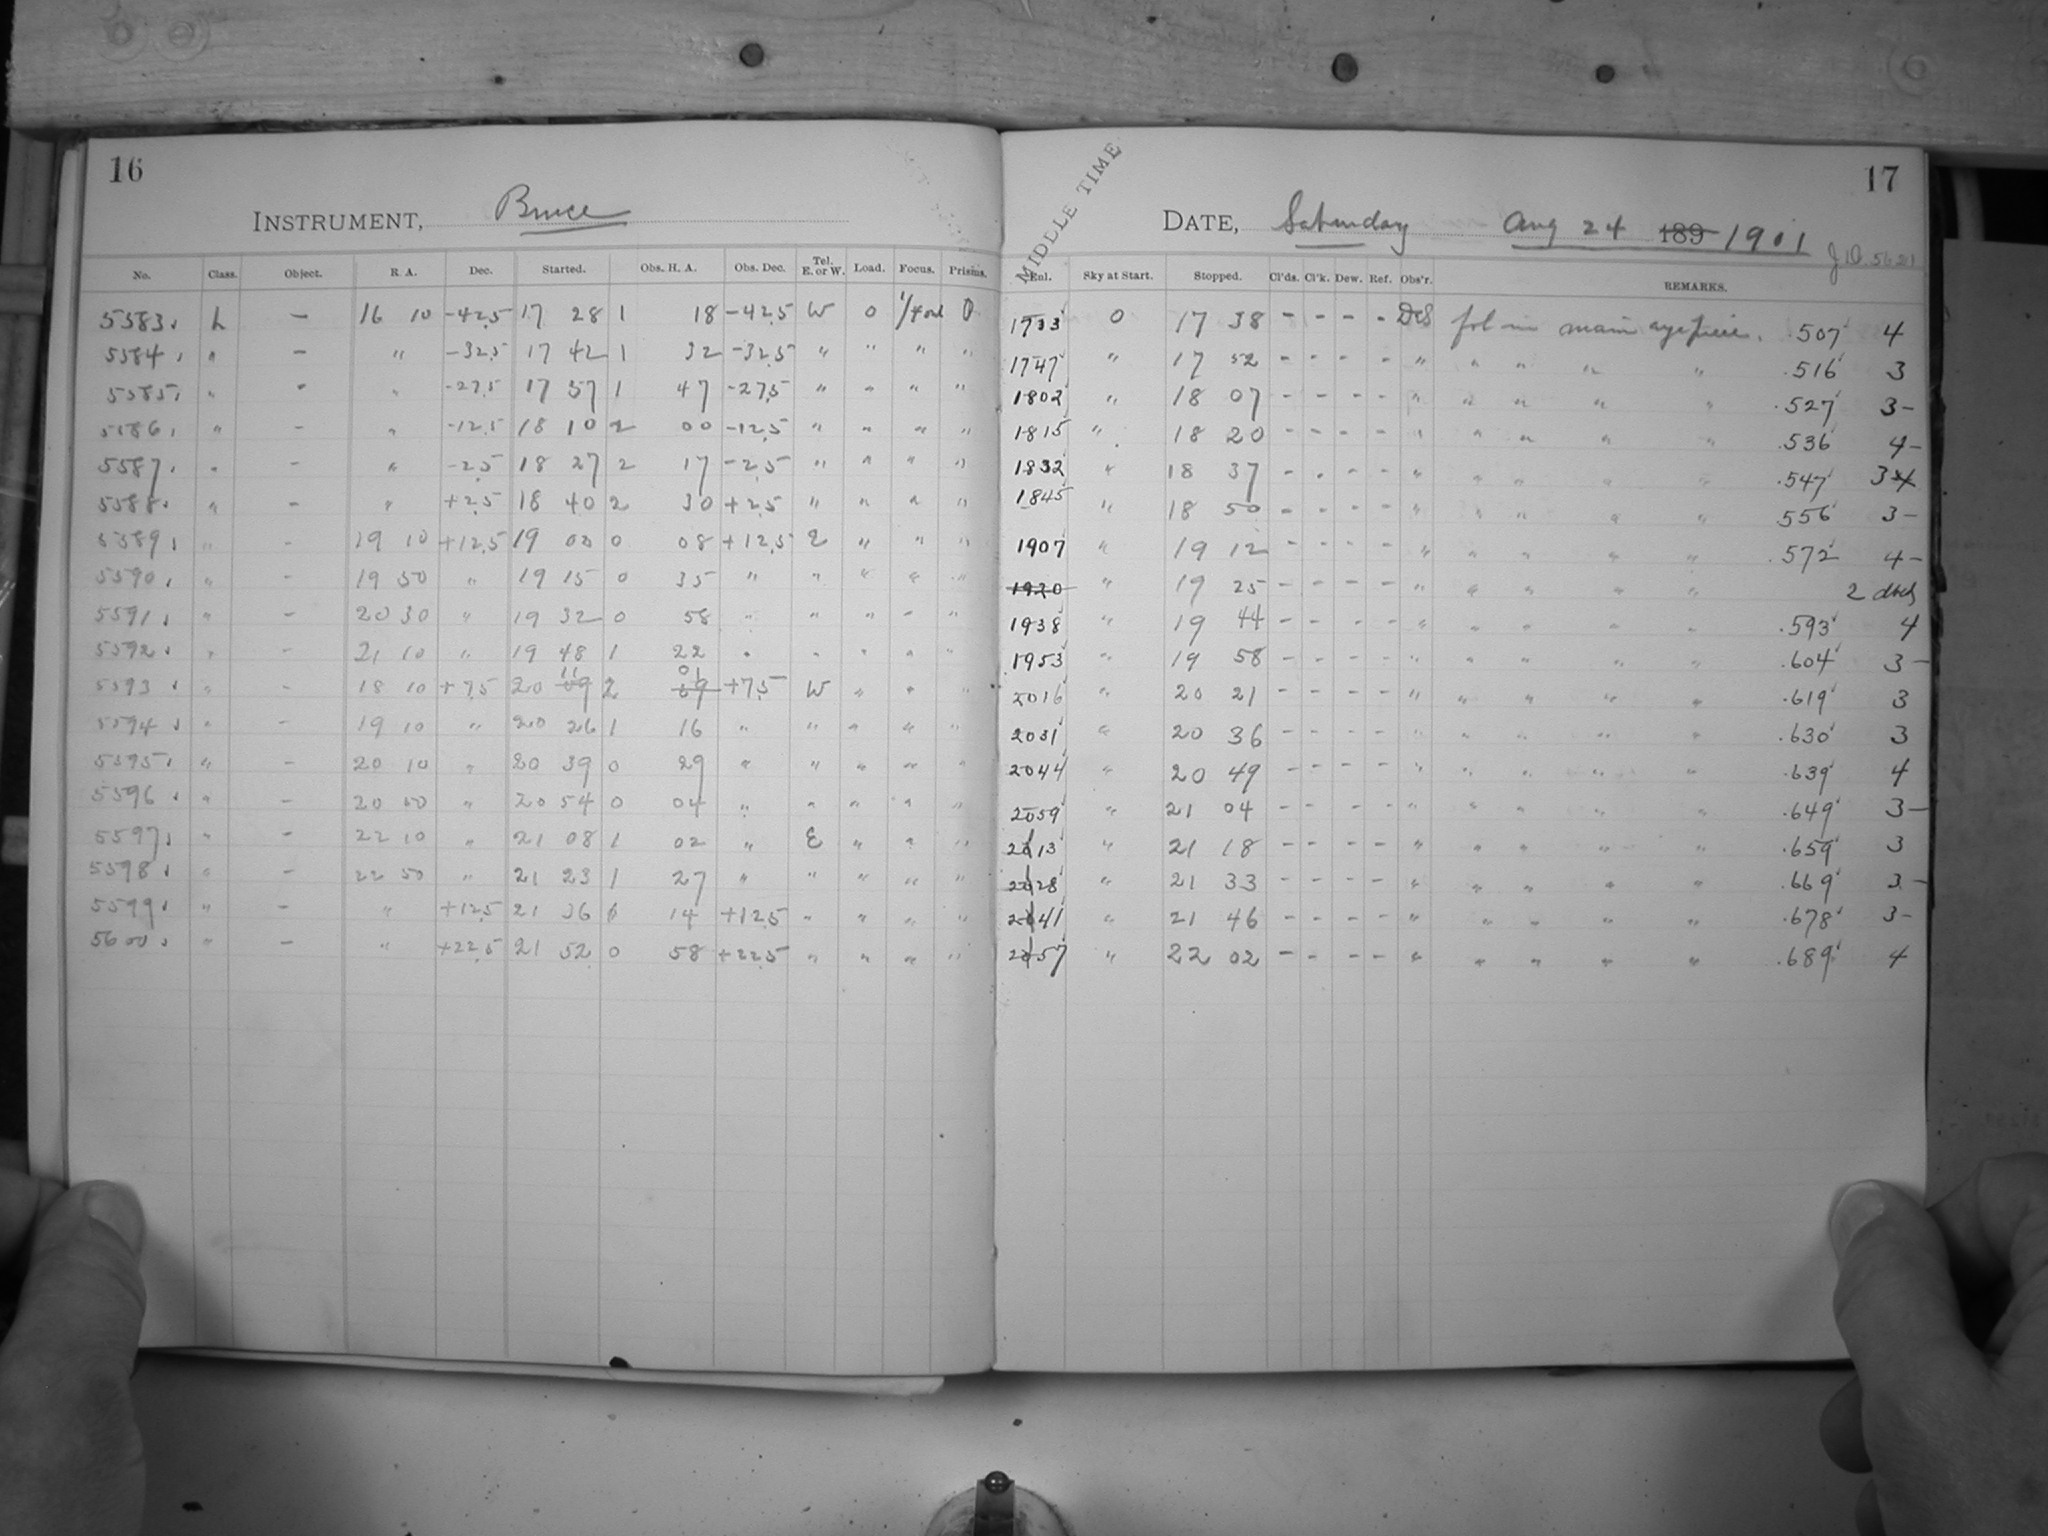 16
INSTRUMENT, Bruce
No. Class. Object. R. A. Dec. Started. Obs. H. A. Obs. Dec. Tel. E. or W. Load. Focus. Prisms.
5583. L — 16 10 -42.5 17 28 1 18 -42.5 W 0 0
5584. " — " -32.5 17 42 1 32 -32.5 " " " "
5585. " - " -27.5 17 57 1 47 -27.5 " " " "
5586. " - " -12.5 18 10 2 00 -12.5 " " " "
5587. " - " -2.5 18 27 2 17 -2.5 " " " "
5588. " - " +2.5 18 40 2 30 +2.5 " " " "
5589. " - 19 10 +12.5 19 02 0 08 +12.5 E " " "
5590. " - 19 50 " 19 15 0 35 " " " " "
5591. " - 20 30 " 19 32 0 58 " " " " "
5592. " - 21 10 " 19 48 1 22 " " " " "
5593. " - 18 10 +7.5 20 11 2 01 +7.5 W " " "
5594. " - 19 10 " 20 26 1 16 " " " " "
5595. " - 20 10 " 20 39 0 29 " " " " "
5596. " - 20 50 " 20 54 0 04 " " " " "
5597. " - 22 10 " 21 08 1 02 " E " " "
5598. " - 22 50 " 21 23 1 27 " " " " "
5599. " - " +12.5 21 36 14 +12.5 " " " "
5600. " - " +22.5 21 52 0 58 +22.5 " " " "
17
MIDDLE TIME
DATE, Saturday Aug 24 189 1901
J.D. 5621
Enl. Sky at Start. Stopped. Cl'ds. Cl'k. Dew. Ref. Obs'r. REMARKS.
1733 0 17 38 - - - - DeS fol in main eyepiece. .507 4
1747 " 17 52 - - - - " " " " " .516 3
1802 " 18 07 - - - - " " " " " .527 3-
1815 " 18 20 - - - - " " " " " .536 4-
1832 " 18 37 - - - - " " " " " .547 3
1845 " 18 50 - - - - " " " " " 556 3-
1907 " 19 12 - - - - " " " " " .572 4-
1920 " 19 25 - - - - " " " " " 2
1938 " 19 44 - - - - " " " " " .593 4
1953 " 19 58 - - - - " " " " " .604 3-
2016 " 20 21 - - - - " " " " " .619 3
2031 " 20 36 - - - - " " " " " .630 3
2044 " 20 49 - - - - " " " " " .639 4
2059 " 21 04 - - - - " " " " " .649 3-
2113 " 21 18 - - - - " " " " " .659 3
2128 " 21 33 - - - - " " " " " .669 3-
2141 " 21 46 - - - - " " " " " .678 3-
2157 " 22 02 - - - - " " " " " .689 4